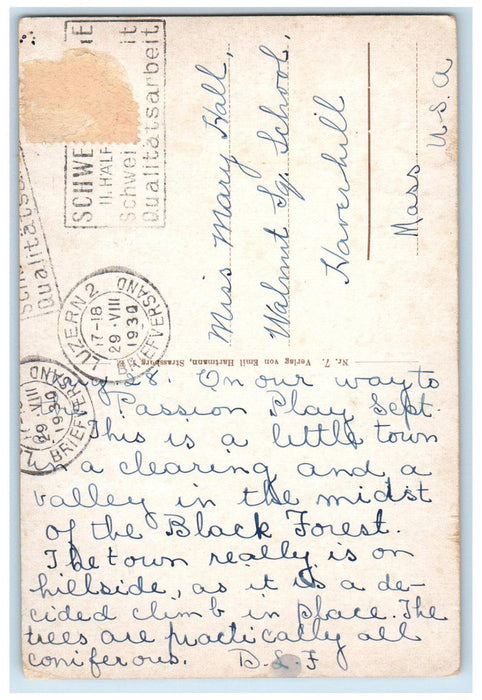 SCHWE
II. HALF
Schwei it
Qualitätsarbeit
Qualitäts
LUZERN 2
17-18
29.VIII
1930
BRIEFVERSAND
29.VIII
1930
BRIEFVERSAND
Miss Mary Hall,
Walnut Sq. School,
Haverhill
Mass
U.S.A
Nr. 7. Verlag von Emil Hartmann, Strassburg
Aug 28. On our way to
Passion Play Sept.
This is a little town
in a clearing and a
valley in the midst
of the Black Forest.
The town really is on
hillside, as it is a de-
cided climb in place. The
trees are practically all
coniferous. D.L.F